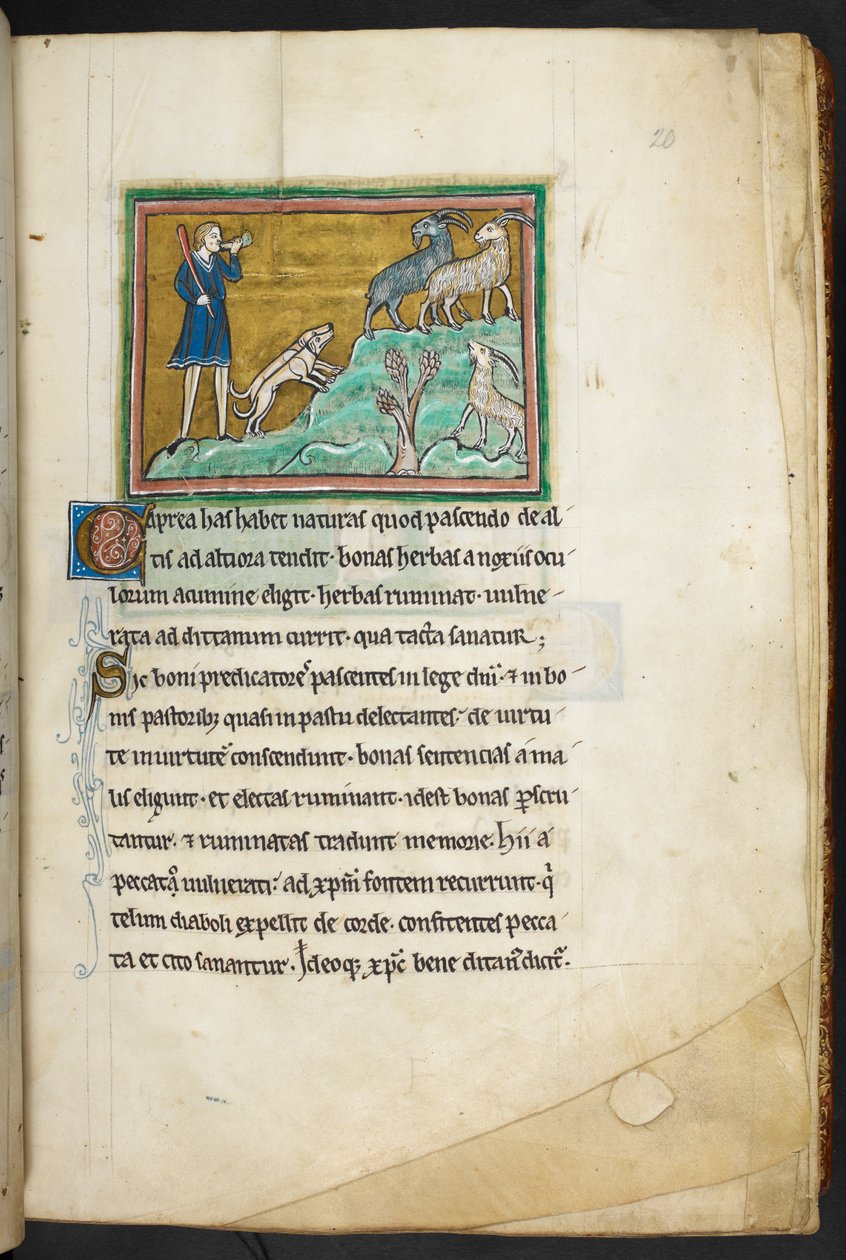 20
Caprea has habet naturas quod pascendo de al-
tis ad altiora tendit· bonas herbas a noxiis ocu-
lorum acumine eligit· herbas ruminat· uulne-
rata ad dittanum currit· qua tacta sanatur;
Sic boni predicatores pascentes in lege dn̄i· ⁊ in bo-
nis pastoribꝫ quasi in pastu delectantes· de uirtu-
te in uirtutē conscendunt· bonas sentencias a ma-
lis eligunt· et electas ruminant· idest bonas ꝑscru-
tantur· ⁊ ruminatas tradunt memorie· Hii a
peccatꝰ uulnerati· ad xp̄m fontem recurrunt· qͥ
telum diaboli expellit de corde· confitentes pecca-
ta et cito sanantur· Ideoqꝫ xp̄c bene ditan̄ dicit᷑·